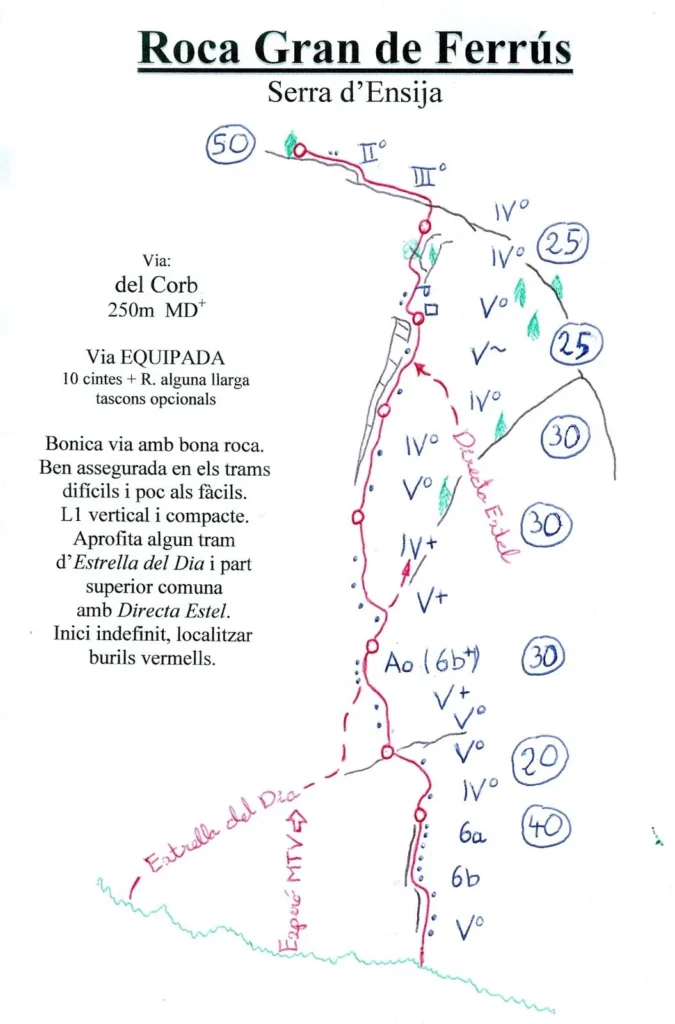 Roca Gran de Ferrús
Serra d'Ensija
50
IIº
IIIº
IVº
25
IVº
Via:
del Corb
250m MD+
Vº
V~
25
Via EQUIPADA
10 cintes + R. alguna llarga
tascons opcionals
IVº
30
Directa Estel
Bonica via amb bona roca.
Ben assegurada en els trams
difícils i poc als fàcils.
L1 vertical i compacte.
Aprofita algun tram
d'Estrella del Dia i part
superior comuna
amb Directa Estel.
Inici indefinit, localitzar
burils vermells.
IVº
Vº
30
IV+
V+
Ao (6b+)
30
V+
Vº
Vº
20
IVº
Estrella del Dia
Esperó MTV
40
6a
6b
Vº